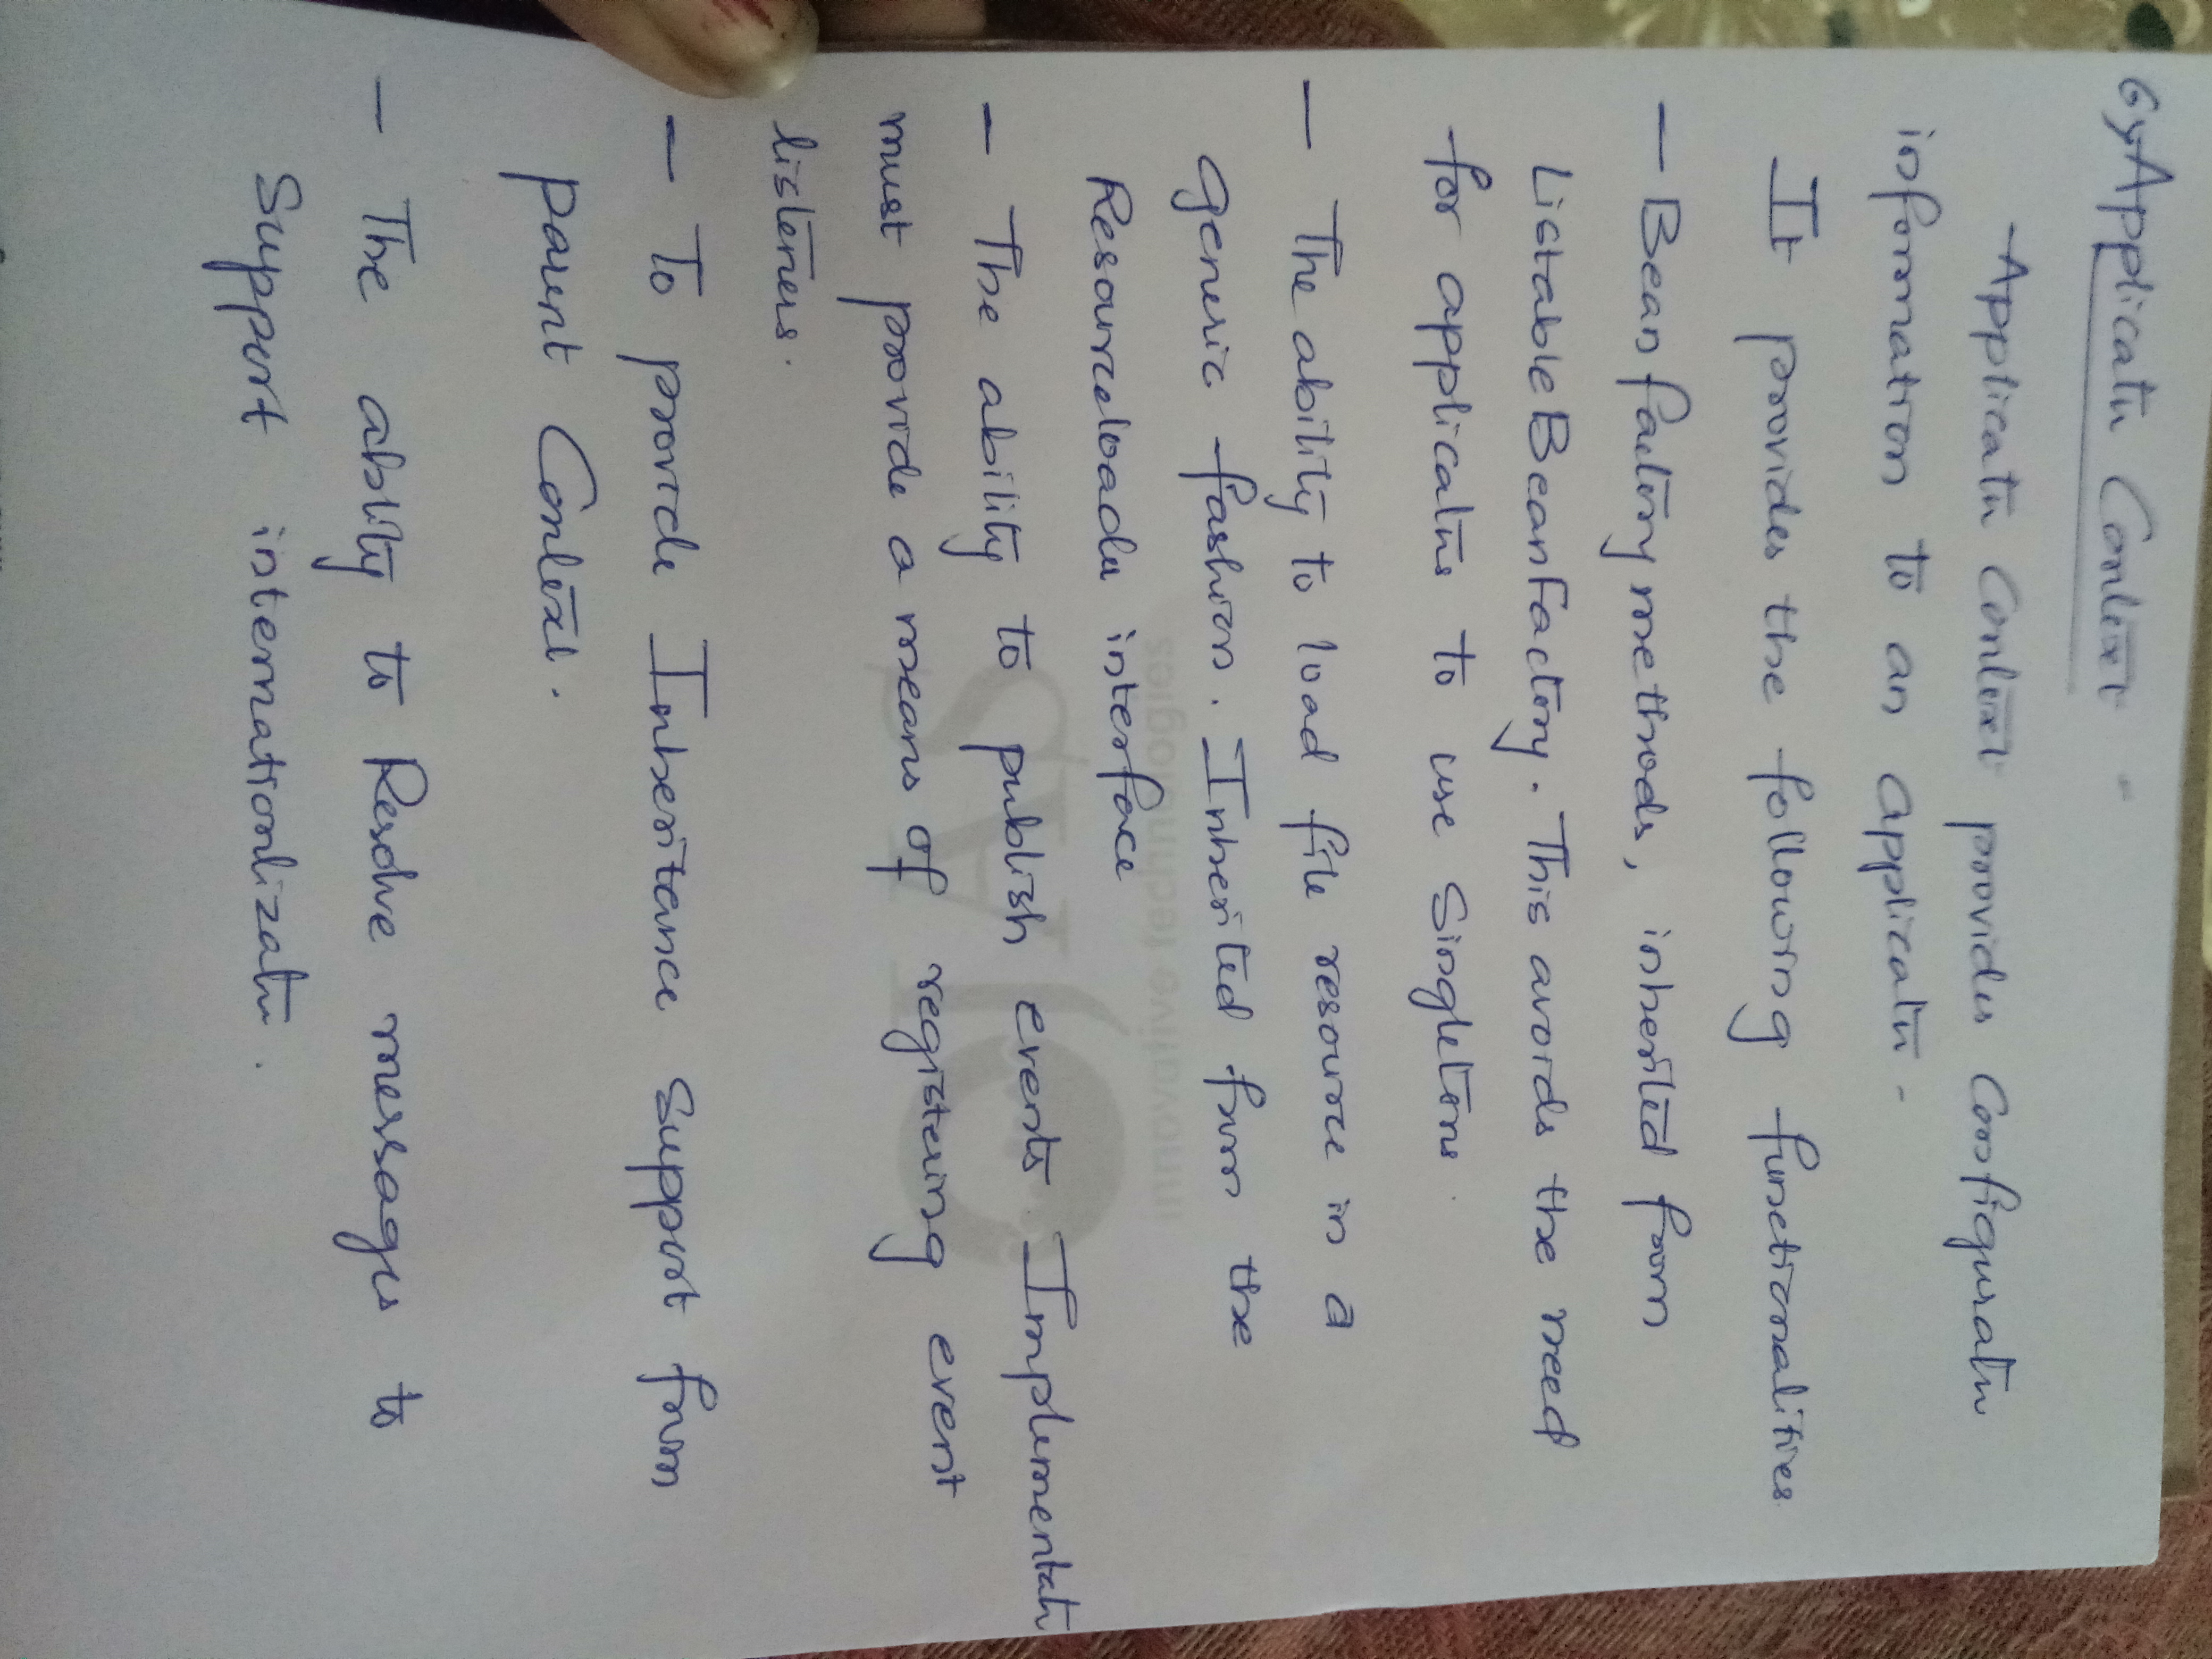 6) Applicatn Context -
- Applicatn Context provides Configuratn
information to an Applicatn -
It provides the following functionalities
- Bean factory methods, inherited from
ListableBeanFactory. This avoids the need
for applicatns to use Singletons.
- The ability to load file resource in a
generic fashion. Inherited from the
Resourceloader interface
- The ability to publish events Implementatn
must provide a means of registering event
listeners.
- To provide Inheritance Support from
parent Context.
- The ability to Resolve messages to
Support internationlizatn.
OJAS
innovative technologies